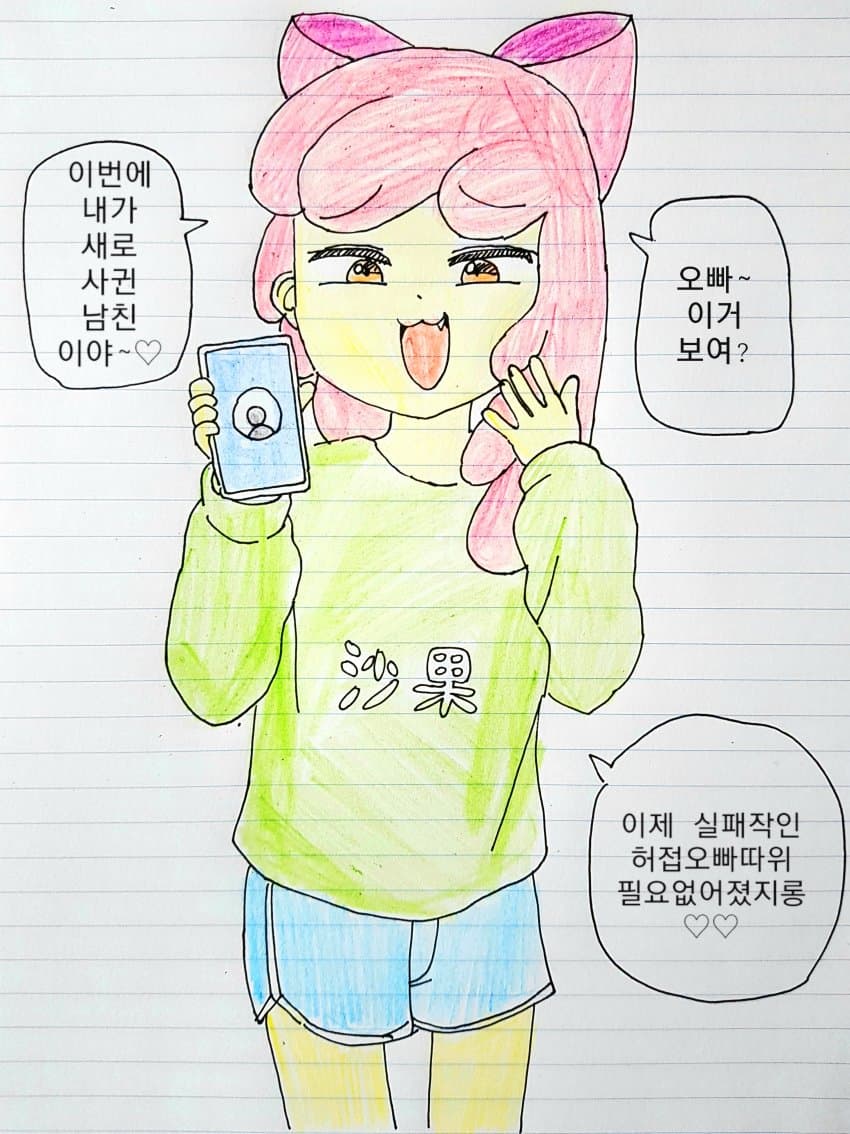 오빠~
이거
보여?
이번에
내가
새로
사귄
남친
이야~♡
沙果
이제 실패작인
허접오빠따위
필요없어졌지롱
♡♡